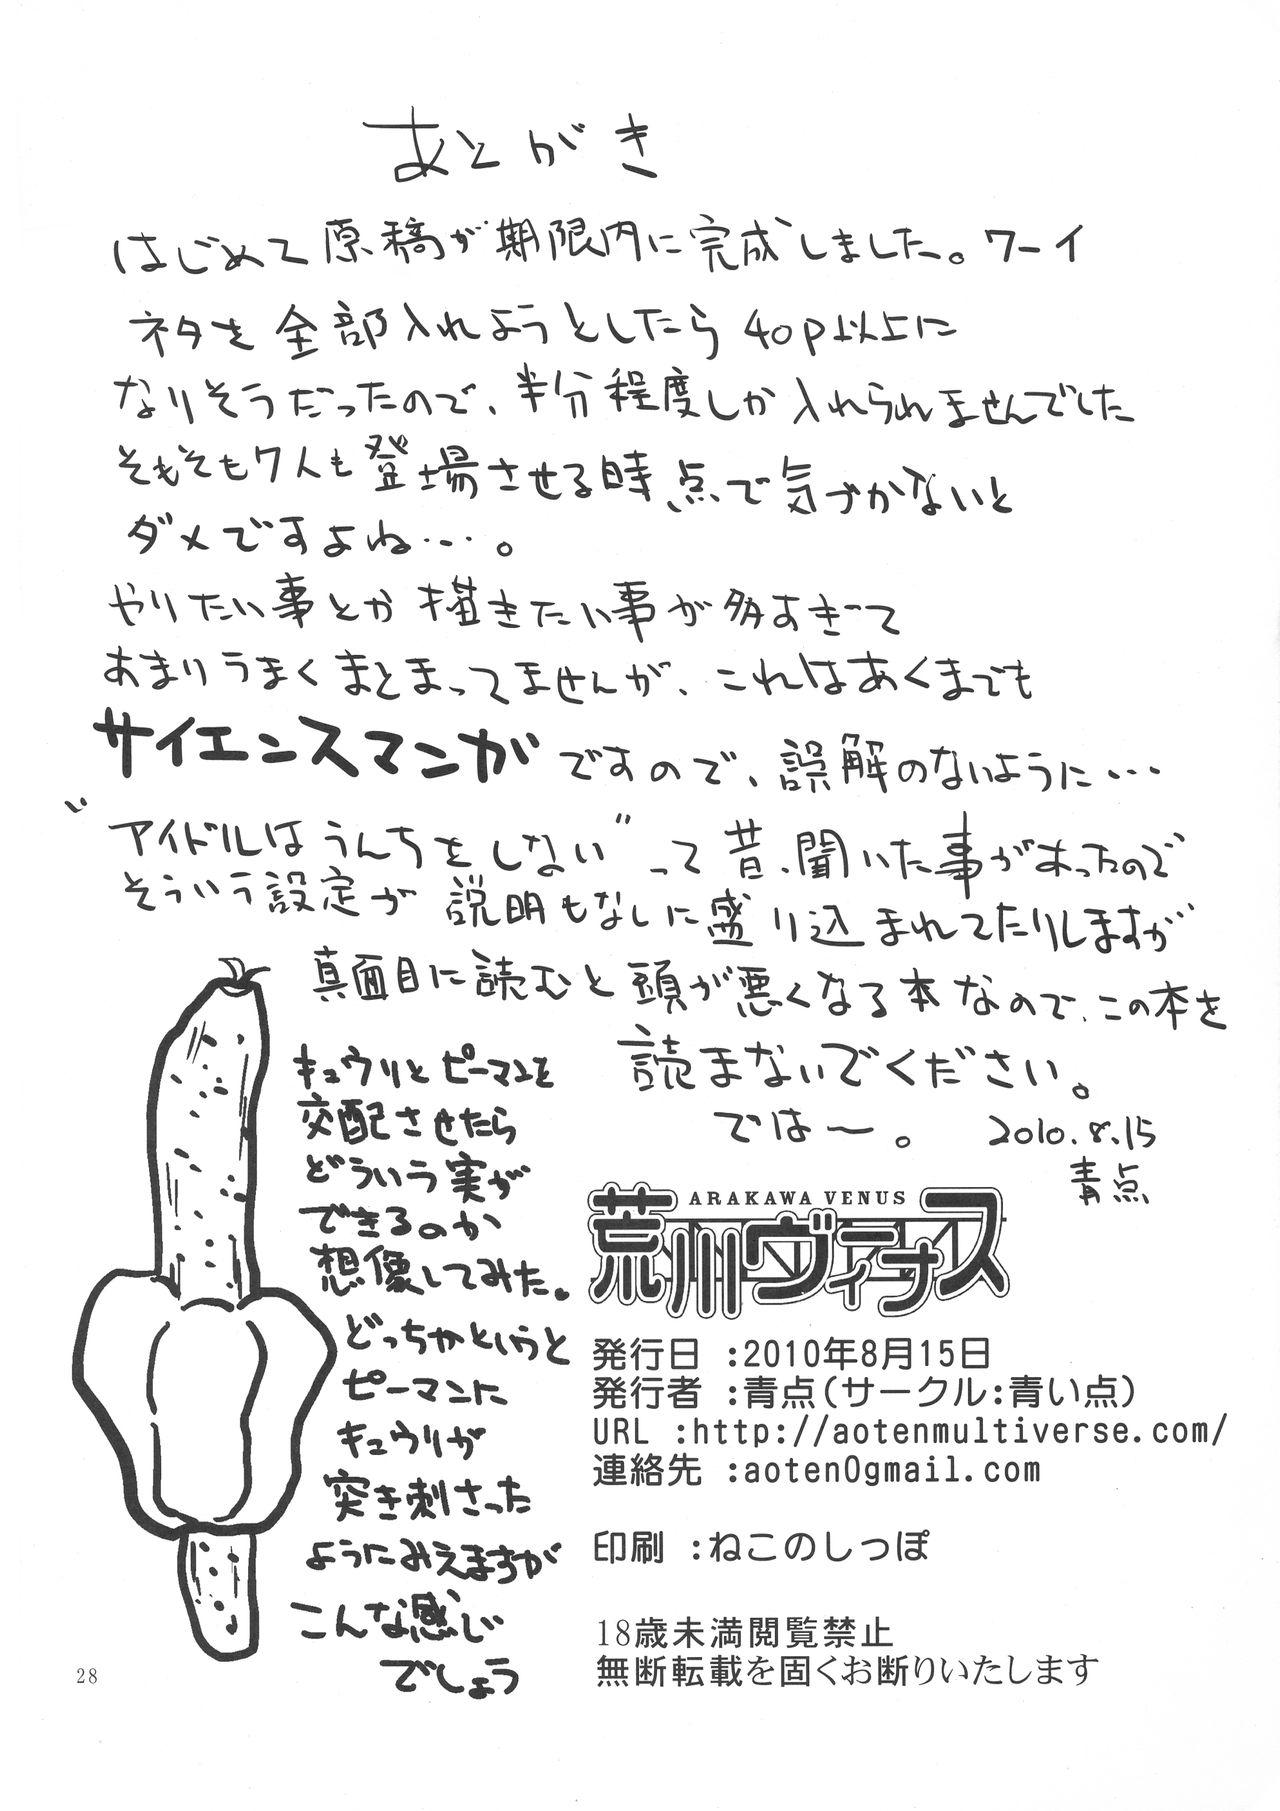 あとがき
はじめて原稿が期限内に完成しました。ワーイ
ネタを全部入れようとしたら40p以上に
なりそうだったので、半分程度しか入れられませんでした
そもそも7人も登場させる時点で気づかないと
ダメですよね…。
やりたい事とか描きたい事が多すぎて
あまりうまくまとまってませんが、これはあくまでも
サイエンスマンガですので、誤解のないように…
"アイドルはうんちをしない"って昔、聞いた事があったので
そういう設定が説明もなしに盛り込まれてたりしますが
真面目に読むと頭が悪くなる本なので、この本を
読まないでください。
では〜。
2010.8.15
青点
キュウリとピーマンを
交配させたら
どういう実が
できるのか
想像してみた。
どっちかというと
ピーマンに
キュウリが
突き刺さった
ようにみえますが
こんな感じ
でしょう
ARAKAWA VENUS
荒川ヴィーナス
発行日 :2010年8月15日
発行者 :青点(サークル:青い点)
URL :http://aotenmultiverse.com/
連絡先 :aoten0gmail.com
印刷 :ねこのしっぽ
18歳未満閲覧禁止
無断転載を固くお断りいたします
28